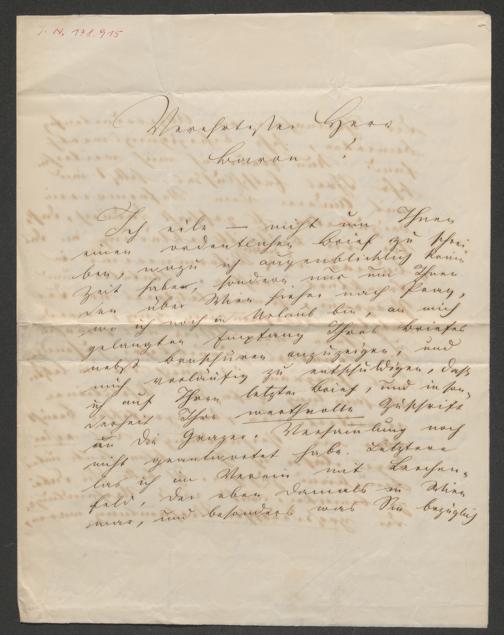 I. N. 138.915
Verehrtester Herr
Baron!
Ich eile — nicht um Ihnen
einen ordentlichen Brief zu schrei
ben, wozu ich augenblicklich keine
Zeit habe, sondern nur um Ihnen
den über Wien hieher nach Prag,
wo ich noch in Urlaub bin, an mich
gelangten Empfang Ihres Briefes
nebst Brochüren anzuzeigen, und
mich vorläufig zu entschuldigen, daß
ich auf Ihren letzten Brief, und inson,
derheit Ihre werthvolle Zuschrift
an die Grazer Versammlung noch
nicht geantwortet habe. Letztere
las ich im Verein mit Lerchen,
feld, der eben damals in Wien
war, und besonders was Sie bezüglich